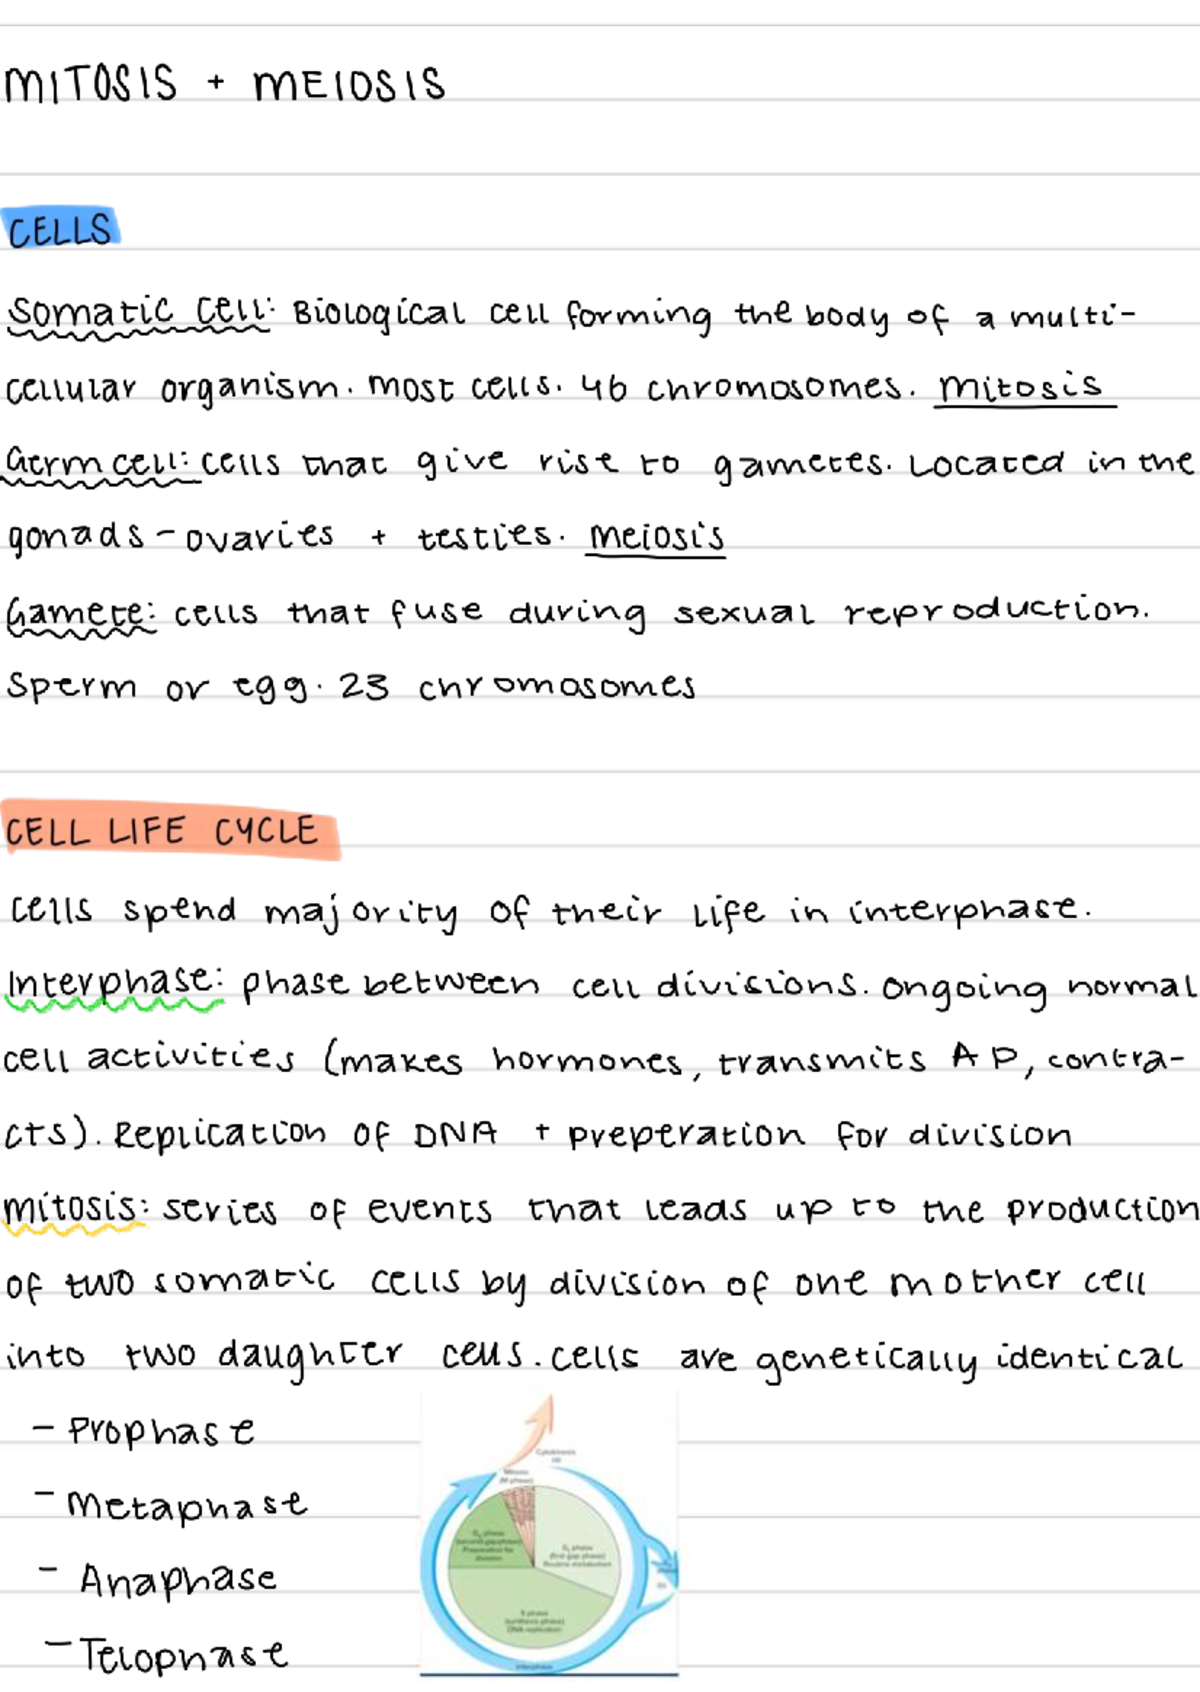 MITOSIS + MEIOSIS
CELLS
Somatic Cell: Biological cell forming the body of a multi-
cellular organism. Most cells. 46 chromosomes. Mitosis
Germ cell: cells that give rise to gametes. Located in the
gonads - ovaries + testies. Meiosis
Gamete: cells that fuse during sexual reproduction.
Sperm or egg. 23 chromosomes
CELL LIFE CYCLE
Cells spend majority of their life in interphase.
Interphase: phase between cell divisions. Ongoing normal
cell activities (makes hormones, transmits AP, contra-
cts). Replication of DNA + preperation for division
Mitosis: series of events that leads up to the production
of two somatic cells by division of one mother cell
into two daughter cells. cells are genetically identical
- Prophase
- Metaphase
- Anaphase
- Telophase
Cytokinesis
Mitosis
(M phase)
G₂ phase
(second gap phase)
Preparation for
division
G₁ phase
(first gap phase)
Routine metabolism
S phase
(synthesis phase)
DNA replication
Interphase